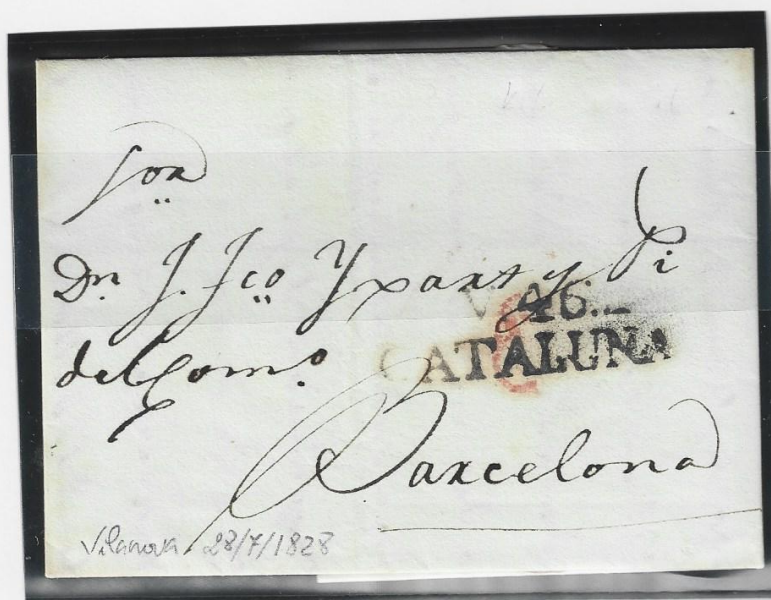 Sor
Dn. J. Fco Yxart y Pi
del Como.
46.
CATALUNA
Barcelona
Vilanova 28/7/1828